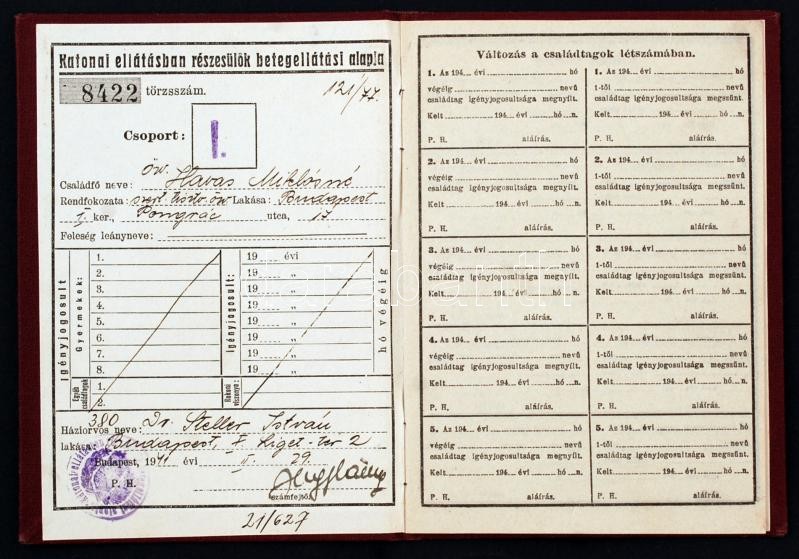 Katonai ellátásban részesülők betegellátási alapja
8422 törzsszám. 121/77.
Csoport: I.
öv.
Családfő neve: Havas Miklósné
Rendfokozata: Lakása: Budapest
I. ker., Pongrác utca, 17
Feleség leányneve:
Igényjogosult
Gyermekek:
1.
2.
3.
4.
5.
6.
7.
8.
Egyéb családtagok
1.
2.
Igényjogosult:
19 évi
19 „
19 „
19 „
19 „
19 „
19 „
hó végéig
Rokoni viszonya:
380
Háziorvos neve: Dr. Steller István
lakása: Budapest, X. Liget-tér 2
Budapest, 1941 évi II. 29.
P. H.
számfejtő.
21/627
Változás a családtagok létszámában.
1. Az 194... évi hó
végéig nevű
családtag igényjogosultsága megnyílt.
Kelt 194... évi hó ...n.
P. H. aláírás.
1. Az 194... évi hó
1-től nevű
családtag igényjogosultsága megszűnt.
Kelt 194... évi hó ...n.
P. H. aláírás.
2. Az 194... évi hó
végéig nevű
családtag igényjogosultsága megnyílt.
Kelt 194... évi hó ...n.
P. H. aláírás.
2. Az 194... évi hó
1-től nevű
családtag igényjogosultsága megszűnt.
Kelt 194... évi hó ...n.
P. H. aláírás.
3. Az 194... évi hó
végéig nevű
családtag igényjogosultsága megnyílt.
Kelt 194... évi hó ...n.
P. H. aláírás.
3. Az 194... évi hó
1-től nevű
családtag igényjogosultsága megszűnt.
Kelt 194... évi hó ...n.
P. H. aláírás.
4. Az 194... évi hó
végéig nevű
családtag igényjogosultsága megnyílt.
Kelt 194... évi hó ...n.
P. H. aláírás.
4. Az 194... évi hó
1-től nevű
családtag igényjogosultsága megszűnt.
Kelt 194... évi hó ...n.
P. H. aláírás.
5. Az 194... évi hó
végéig nevű
családtag igényjogosultsága megnyílt.
Kelt 194... évi hó ...n.
P. H. aláírás.
5. Az 194... évi hó
1-től nevű
családtag igényjogosultsága megszűnt.
Kelt 194... évi hó ...n.
P. H. aláírás.